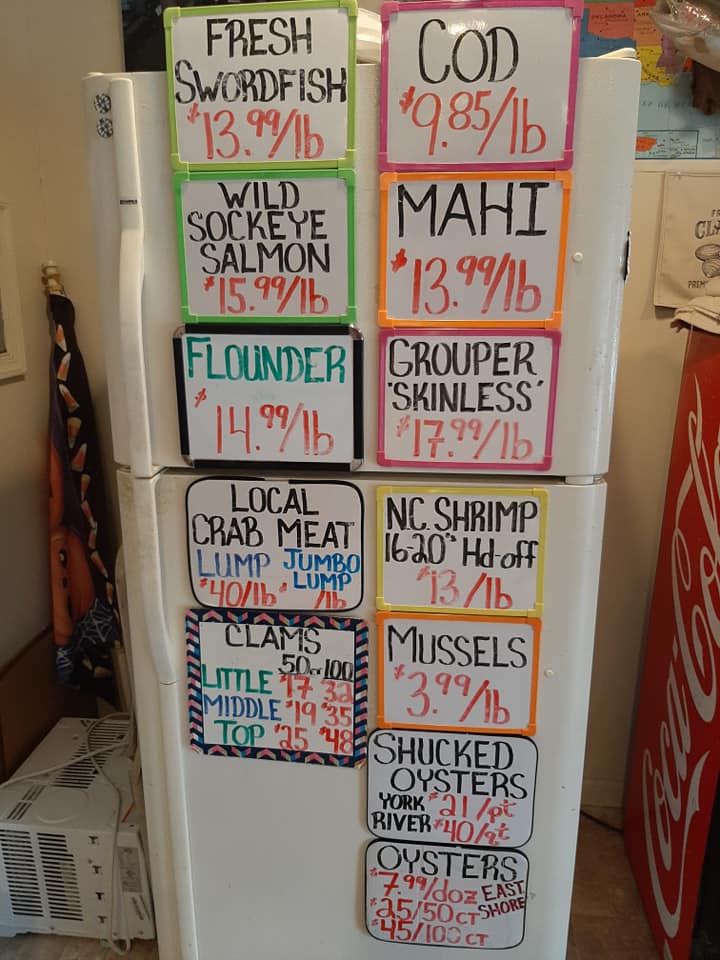 FRESH
SWORDFISH
$13.99/lb
COD
$9.85/lb
WILD
SOCKEYE
SALMON
$15.99/lb
MAHI
$13.99/lb
FLOUNDER
$14.99/lb
GROUPER
'SKINLESS'
$17.99/lb
LOCAL
CRAB MEAT
LUMP JUMBO LUMP
$40/lb $ /lb
N.C. SHRIMP
16-20's Hd-off
$13/lb
CLAMS
50 or 100
LITTLE $17 32
MIDDLE $19 $35
TOP $25 $48
MUSSELS
$3.99/lb
SHUCKED
OYSTERS
YORK $21/pt
RIVER $40/qt
OYSTERS
$7.99/doz EAST
$25/50 CT SHORE
$45/100 CT
Coca-Cola
OKLAHOMA